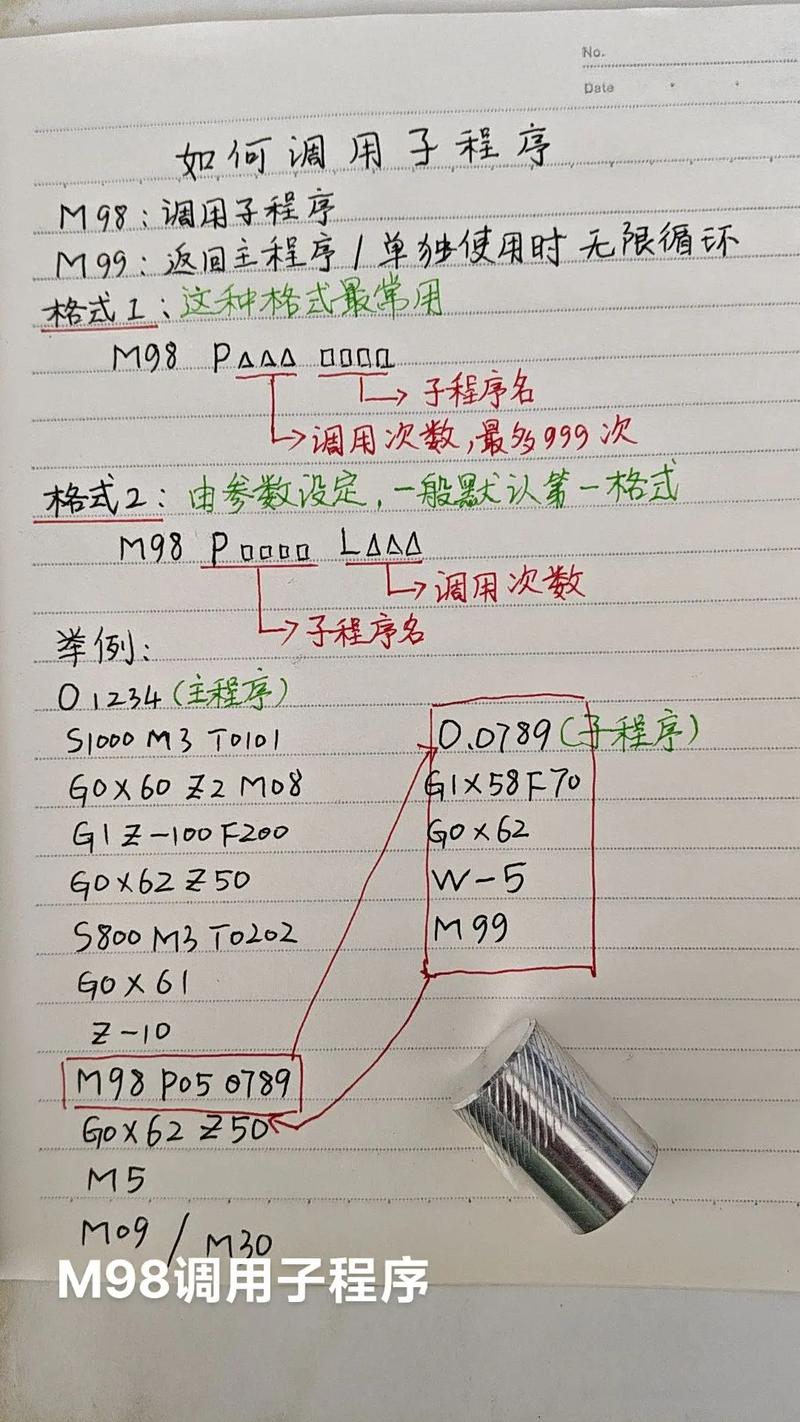 No.
Date
如何调用子程序
M98：调用子程序
M99：返回主程序/单独使用时无限循环
格式1：这种格式最常用
M98 P△△△ □□□□
子程序名
调用次数,最多999次
格式2：由参数设定,一般默认第一格式
M98 P□□□□ L△△△
调用次数
子程序名
举例：
O1234(主程序)
S1000 M3 T0101
G0X60 Z2 M08
G1 Z-100 F200
G0X62 Z50
S800 M3 T0202
G0X61
Z-10
M98 P05 0789
G0X62 Z50
M5
M09 / M30
O.0789(子程序)
G1X58F70
G0X62
W-5
M99
M98调用子程序